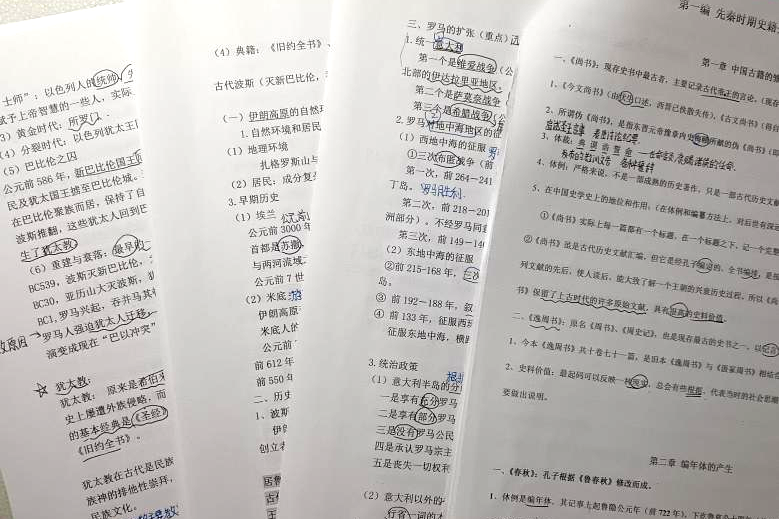 士师”：以色列人的统帅，
赋予上帝智慧的一些人，实际
3）黄金时代：所罗门
（4）分裂时代：以色列犹太王
（5）巴比伦之囚
公元前 586 年，新巴比伦国王
民及犹太国王掳至巴比伦城。
在巴比伦聚族而居，保持了自
波斯推翻，这些犹太人回到巴
生了犹太教
（6）重建与衰落：最早
BC539，波斯灭新巴比伦，
BC30，亚历山大灭波斯，
BC1，罗马兴起，吞并马其
罗马人强迫犹太人迁移
演变成现在“巴以冲突”
☆ 犹太教：
犹太教： 原来是希伯来
史上屡遭外族侵略，而
的基本经典是《圣经》
《旧约全书》。
犹太教在古代是民族
族神的排他性崇拜，
民族文化。
（4）典籍：《旧约全书》、
古代波斯（灭新巴比伦，
（一）伊朗高原的自然
1.自然环境和居民
（1）地理环境
扎格罗斯山与
（2）居民：成分复
3.早期历史
（1）埃兰
公元前 3000 年
首都是苏撒
与两河流域
公元前 7 世
（2）米底
伊朗高原
米底人的
公元前
前 612 年
前 550 年
二、历史
1、波斯
伊
创立者
居鲁
古
王
三、罗马的扩张（重点）
1.统一意大利
第一个是维爱战争（公
北部的伊达拉里亚地区。
第二个是萨莫奈战争
第三个是希腊战争（
2.罗马对地中海地区的征
（1）西地中海的征服
①三次布匿战争（前
第一次，前 264—241
丁岛。 罗马胜利.
第二次，前 218—201
洲部分）。不经罗马同意
第三次，前 149—146
（2）东地中海的征服
②前 215-168 年，三次
岛。
③ 前 192—188 年，叙
④ 前 133 年，征服西班
征服东地中海，横跨
3.统治政策
（1）意大利半岛的分
一是享有充分罗马
二是享有部分罗马
三是没有罗马公民
四是承认罗马宗主
五是丧失一切权利
（2）意大利以外的
行省一词的
第一编 先秦时期史籍
第一章 中国古籍的
一、《尚书》：现存史书中最古者，主要记录古代帝王的言论，（现存
1、《今文尚书》（由伏生口述，西晋已佚散失传），《古文尚书》（得自
2、所谓伪《尚书》，是指东晋元帝豫章内史梅赜所献的伪《尚书》（即
3、体裁：典 谟 训 诰 誓 命
4、体例：严格来说，不是一部成熟的历史著作，只是一部古代历史文献
5、在中国史学史上的地位和作用：（在体例和编纂方法上，对后世有深远
①《尚书》实际上每一篇都有一个标题，在一个标题之下，记一个完整
②《尚书》虽是古代历史文献汇编，但它是经孔子编定的，全书编述，是按
列文献的先后，使人读后，能大致了解一个王朝的兴衰历史过程。所以《尚
书》保留了上古时代的许多原始文献，具有很高的史料价值。
二、《逸周书》：原名《周书》、《周史记》，也是现存最古的史书之一，以记言
1、今本《逸周书》共十卷七十一篇，是旧本《逸周书》与《汲冢周书》相结合
2、史料价值：最起码可以反映一种现实，总会有些根据，代表当时的社会思潮
要做出说明。
第二章 编年体的产生
一、《春秋》：孔子根据《鲁春秋》修改而成。
1、体例是编年体，其记事上起鲁隐公元年（前 722 年），下迄鲁哀公